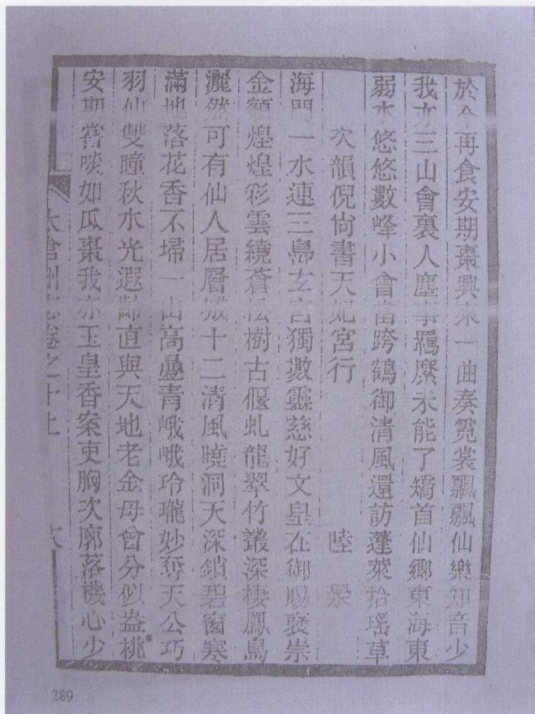 於今再食安期棗興來一曲奏霓裳飄飄仙樂知音少
我亦三山會裏人塵事羈縻未能了矯首仙鄉東海東
弱水悠悠數峰小會當跨鶴御清風還訪蓬萊拾瑤草
次韻倪尚書天妃宮行 陸
海門一水連三島玄宮獨敞靈慈好文皇在御賜褒崇
金額煌煌彩雲繞蒼松樹古偃虬龍翠竹叢深棲鳳鳥
灑然可有仙人居層城十二清風曉洞天深鎖碧窗寒
滿地落花香不埽一山高疊青峨峨玲瓏妙奪天公巧
羽仙雙瞳秋水光遐齡直與天地老金母曾分似盎桃
安期嘗啖如瓜棗我亦玉皇香案吏胸次廓落機心少
太倉州志卷之十上
六
289